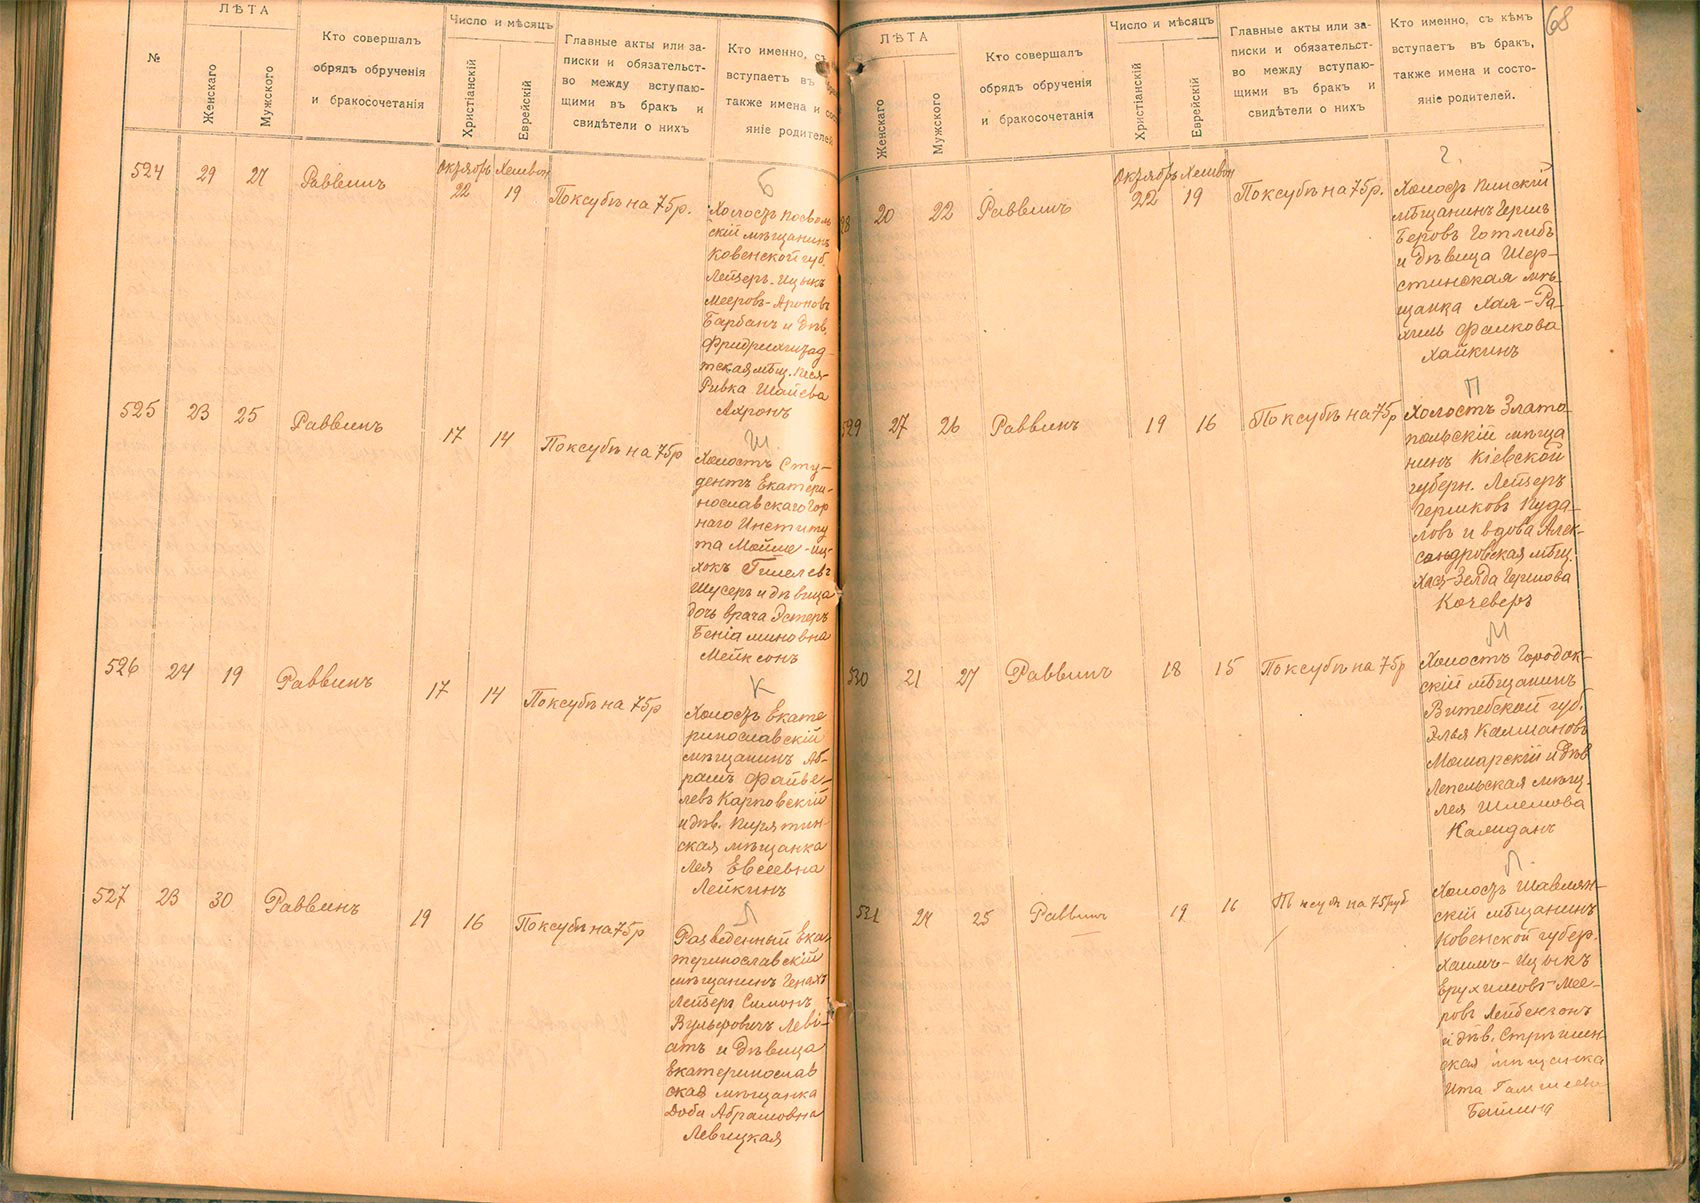 №
ЛѢТА
Женскаго
Мужского
Кто совершалъ
обрядъ обрученія
и бракосочетанія
Число и мѣсяцъ
Христіанскій
Еврейскій
Главные акты или за-
писки и обязательст-
во между вступаю-
щими въ бракъ и
свидѣтели о нихъ
Кто именно, съ
вступаетъ въ
также имена и сос
яніе родителей
524
29
27
Раввинъ
Октябрь Хешвон
22
19
Поксубѣ на 75р.
Б
Холостъ Посволь
скій мѣщанинъ
Ковенской губ.
Лейзеръ-Ицыкъ
Мееровъ-Ароновъ
Барбанъ и дѣв.
Фридрихштад-
тская мѣщ. Песя-
Ривка Шайева
Ахронъ
525
23
25
Раввинъ
17
14
Поксубѣ на 75р
Ш
Холостъ Сту-
дентъ Екатери-
нославскаго Гор
наго Институ
та Мойше-Иц-
хокъ Гилелевъ
Шусеръ и дѣвица
дочь врача Эстеръ
Беніаминовна
Мейксонъ
526
24
19
Раввинъ
17
14
Поксубѣ на 75р
К
Холостъ Екате
ринославскій
мѣщанинъ Аб-
рамъ Файве-
левъ Карповскій
и дѣв. Пирятин-
ская мѣщанка
Лея Евсеевна
Лейкинъ
527
23
30
Раввинъ
19
16
Поксубѣ на 75р
Л
Разведенный Ека-
теринославскій
мѣщанинъ Генахъ
Лейзеръ Симонъ
Вульфовичъ Леви-
атъ и дѣвица
Екатеринослав
ская мѣщанка
Доба Абрамовна
Левицкая
68
ЛѢТА
Женскаго
Мужского
Кто совершалъ
обрядъ обрученія
и бракосочетанія
Число и мѣсяцъ
Христіанскій
Еврейскій
Главные акты или за-
писки и обязательст-
во между вступаю-
щими въ бракъ и
свидѣтели о нихъ
Кто именно, съ кѣмъ
вступаетъ въ бракъ,
также имена и состо-
яніе родителей.
28
20
22
Раввинъ
Октябрь Хешвон
22
19
Поксубѣ на 75р.
Г.
Холостъ Пинскій
мѣщанинъ Гершъ
Беровъ Готлибъ
и дѣвица Шер-
стинская мѣ-
щанка Хая-Ра-
хиль Фалкова
Хайкинъ
529
27
26
Раввинъ
19
16
Поксубѣ на 75р
П
Холостъ Злато-
польскій мѣща
нинъ Кіевской
губерн. Лейзеръ
Гершковъ Пуда-
ловъ и вдова Алек-
сандровская мѣщ.
Хая-Зелда Гершова
Кочеверъ
530
21
27
Раввинъ
18
15
Поксубѣ на 75р
М
Холостъ Городок-
скій мѣщанинъ
Витебской губ.
Элья Калмановъ
Мошарскій и дѣв
Лепельская мѣщ-
Лея Шлемова
Калиданъ
531
24
25
Раввинъ
19
16
Поксубѣ на 75руб
Л.
Холостъ Шавлян-
скій мѣщанинъ
Ковенской губер.
Хаимъ-Ицыкъ
Врухимовъ-Мее-
ровъ Лейбензонъ
и дѣв. Стрѣшин
ская мѣщанка
Ита
Бейлина